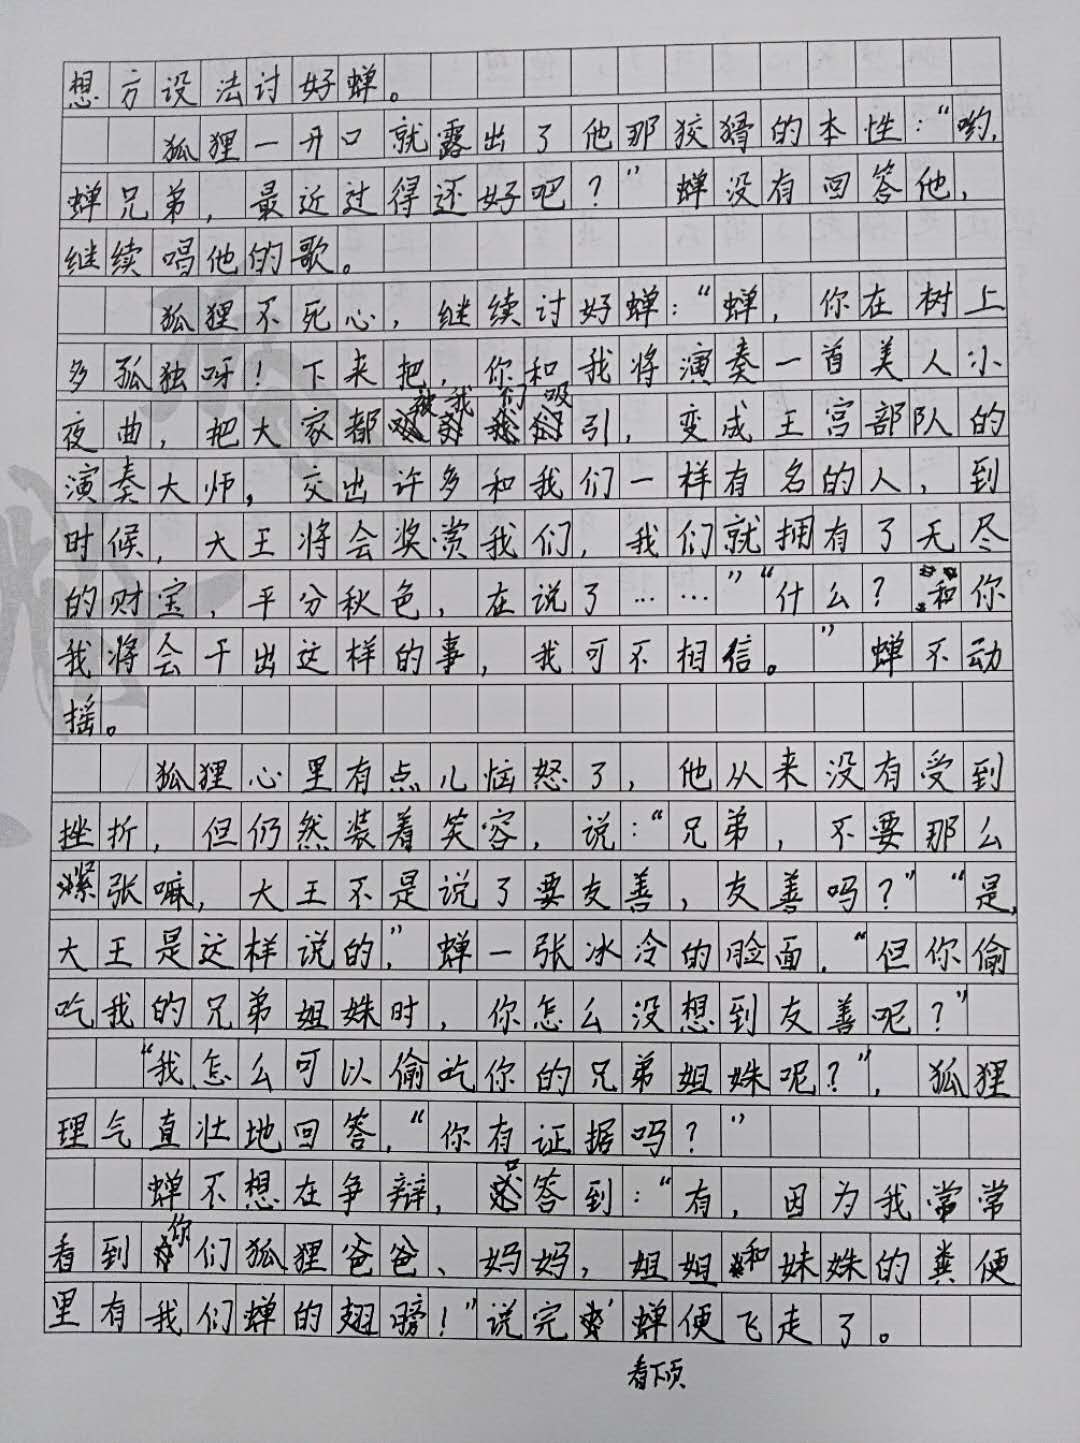 想方设法讨好蝉。
狐狸一开口就露出了他那狡猾的本性：“哟，
蝉兄弟，最近过得还好吧？”蝉没有回答他，
继续唱他的歌。
狐狸不死心，继续讨好蝉：“蝉，你在树上
多孤独呀！下来把，你和我将演奏一首美人小
夜曲，把大家都被我们吸引，变成王宫部队的
演奏大师，交出许多和我们一样有名的人，到
时候，大王将会奖赏我们，我们就拥有了无尽
的财宝，平分秋色，在说了……”“什么？和你
我将会干出这样的事，我可不相信。”蝉不动
摇。
狐狸心里有点儿恼怒了，他从来没有受到
挫折，但仍然装着笑容，说：“兄弟，不要那么
紧张嘛，大王不是说了要友善，友善吗？”“是，
大王是这样说的，”蝉一张冰冷的脸面，“但你偷
吃我的兄弟姐妹时，你怎么没想到友善呢？”
“我怎么可以偷吃你的兄弟姐妹呢？”，狐狸
理气直壮地回答，“你有证据吗？”
蝉不想在争辩，回答到：“有，因为我常常
看到你们狐狸爸爸、妈妈，姐姐和妹妹的粪便
里有我们蝉的翅膀！”说完，蝉便飞走了。
看下页